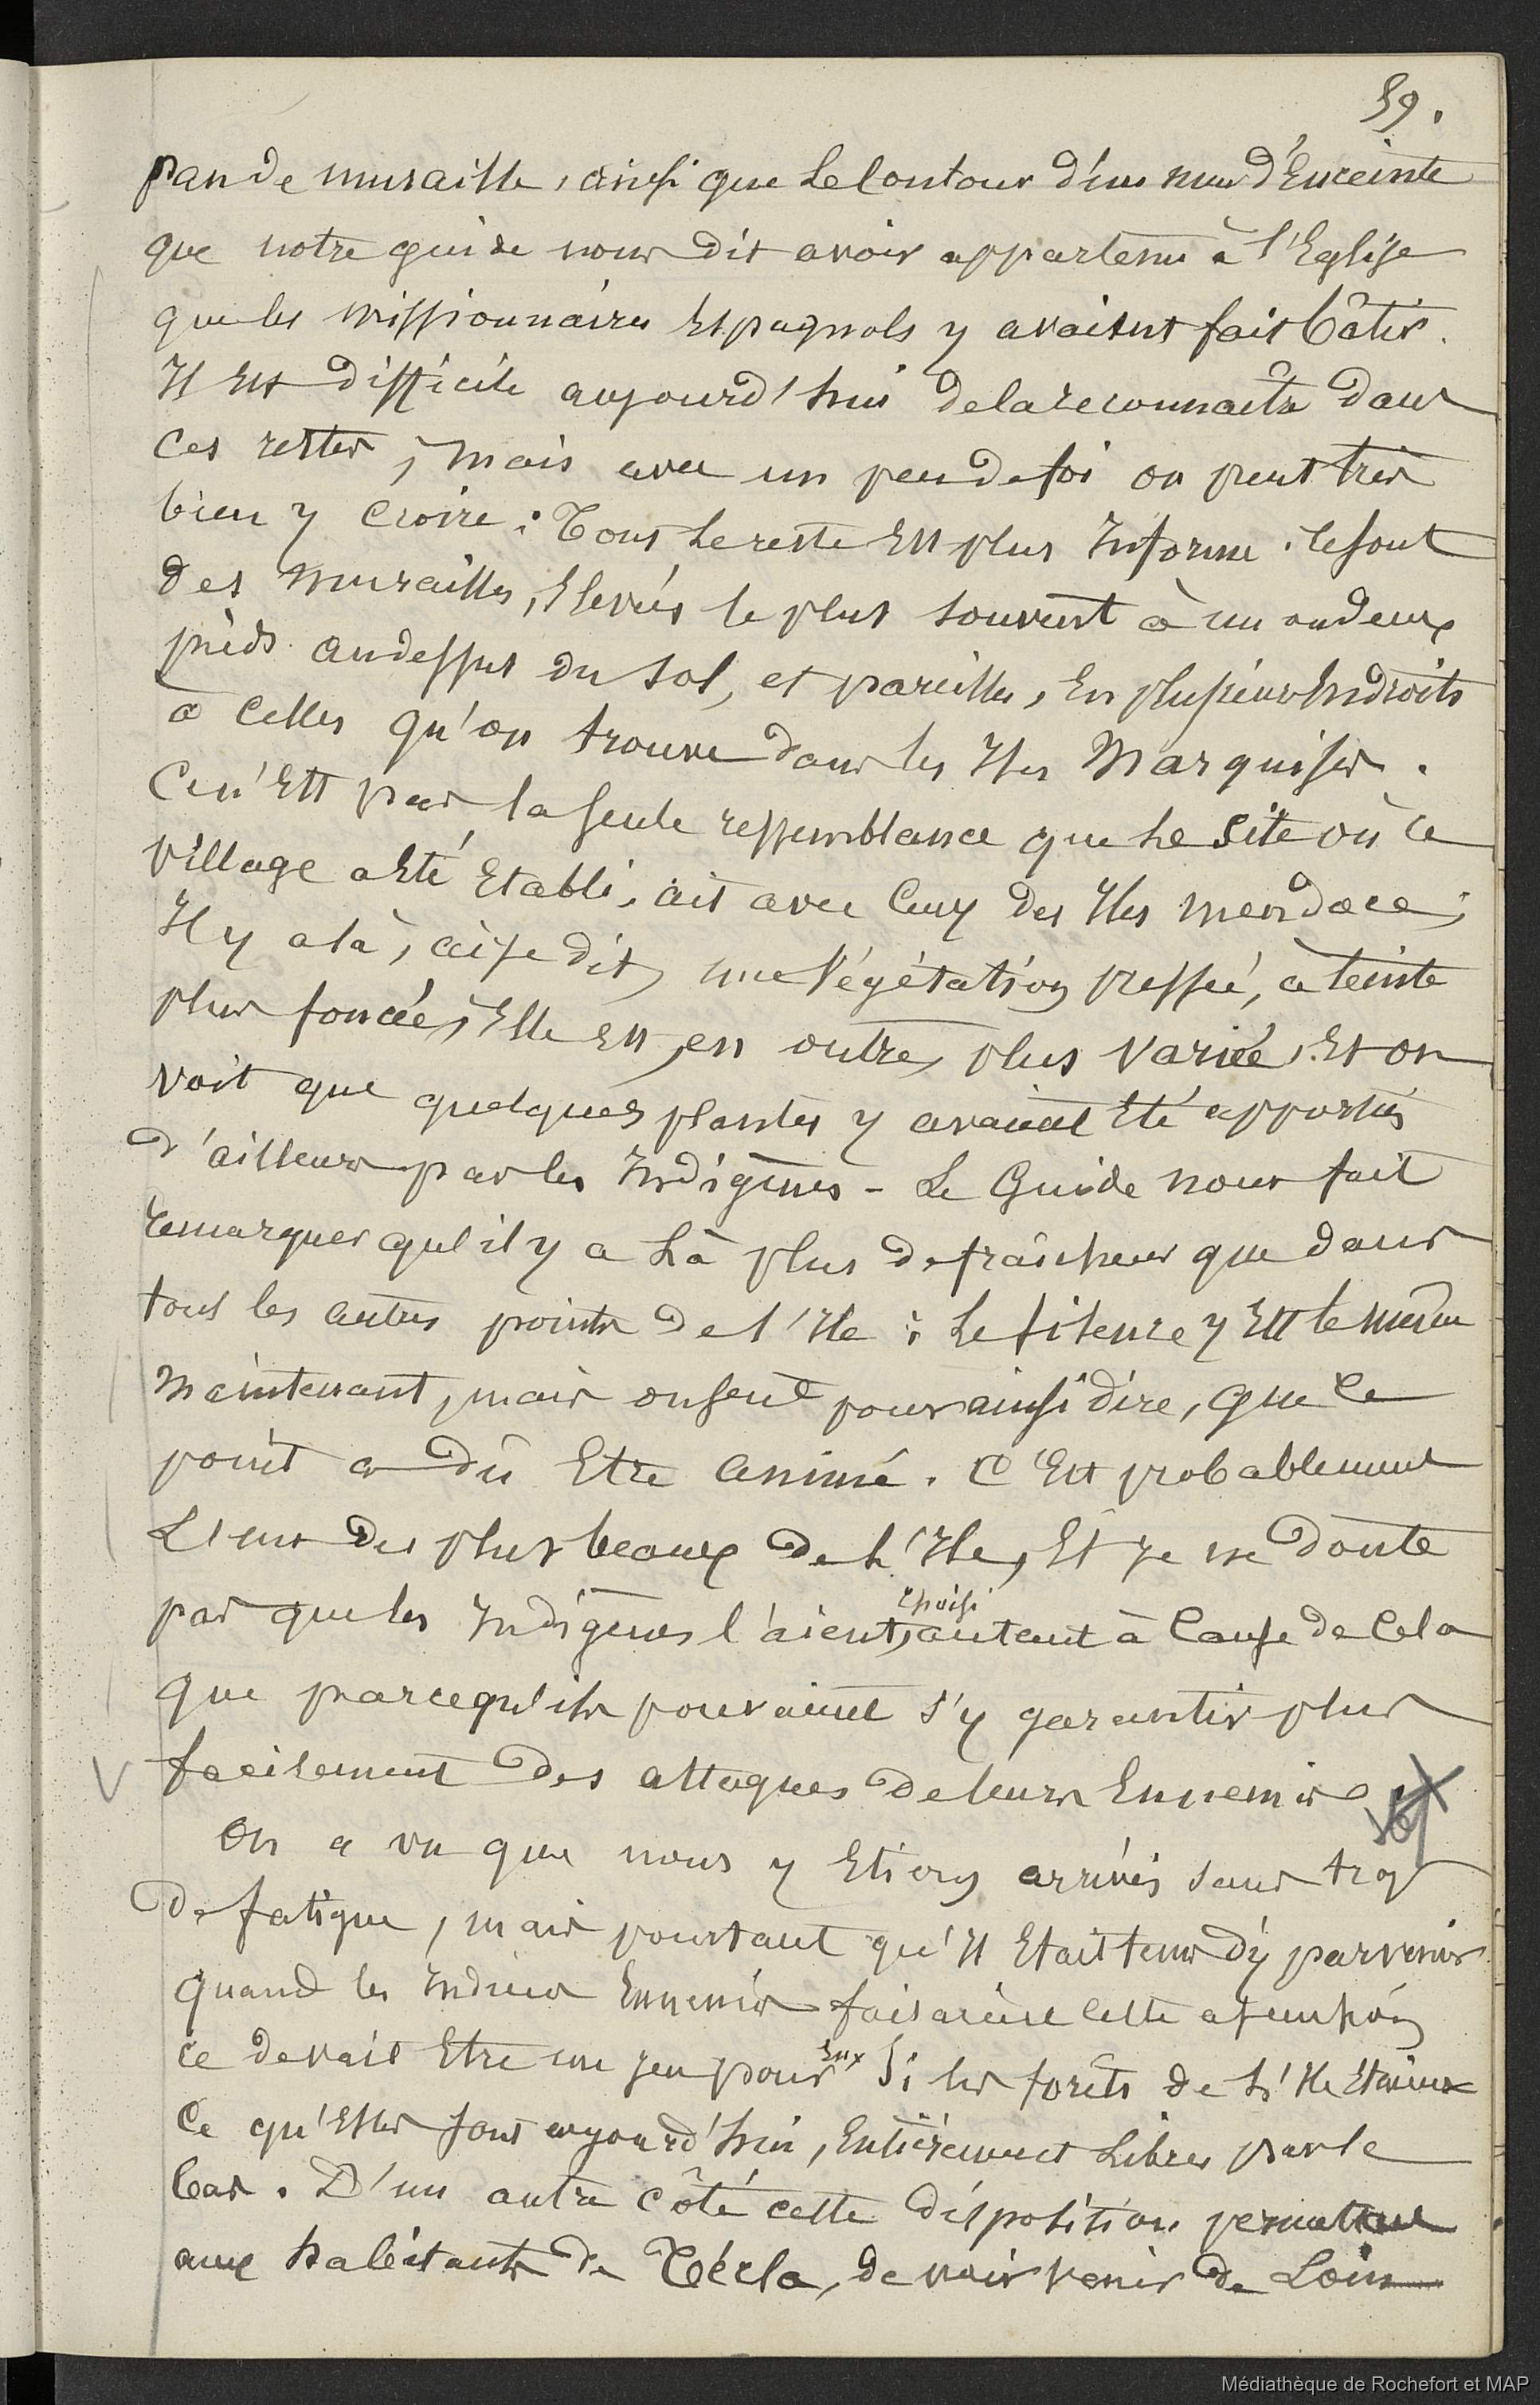 59.
pan de muraille, ainsi que Le Contour d'un mur d'Enceinte
que notre guide nous dit avoir appartenu à l'Eglise
que les missionnaires Espagnols y avaient fait bâtir.
Il Est difficile aujourd'hui de la reconnaitre dans
Ces restes, mais avec un peu de foi on peut très
bien y Croire : Tout Le reste Est plus Informe. Ce sont
des murailles, Elevées le plus souvent à un ou deux
pieds au dessus du sol, et pareilles, En plusieurs Endroits
à Celles qu'on trouve dans les Iles Marquises.
Ce n'Est pas la seule ressemblance que Le Site où Ce
Village a Eté Etabli, ait avec Ceux des Iles mendoce ;
Il y a là, ai-je dit, une Végétation pressée, à teinte
plus foncée, Elle Est, en outre, plus Variée, Et on
voit que quelques plantes y avaient Eté apportées
d'ailleurs par les Indigènes - Le Guide nous fait
remarquer qu'il y a Là plus de fraîcheur que dans
tous les autres points de l'Ile : Le silence y Est le même
maintenant, mais on sent pour ainsi dire, que Ce
point a dû Etre animé. C'Est probablement
L'un des plus beaux de L'Ile, Et je ne doute
pas que les Indigènes l'aient, choisi autant à Cause de Cela
que parcequ'ils pouvaient s'y garantir plus
facilement des attaques de leurs Ennemis
On a vu que nous y Etions arrivés sans trop
de fatigue, mais pourtant qu'Il Etait tems d'y parvenir
quand les Indiens Ennemis faisaient Cette ascension
ce devait Etre un jeu pour Eux Si les forêts de L'Ile Etaient
Ce qu'Elles sont aujourd'hui, Entièrement Libres par le
bas. D'un autre Côté cette disposition permettait
aux habitants de Técla, de voir venir de Loin
Médiathèque de Rochefort et MAP